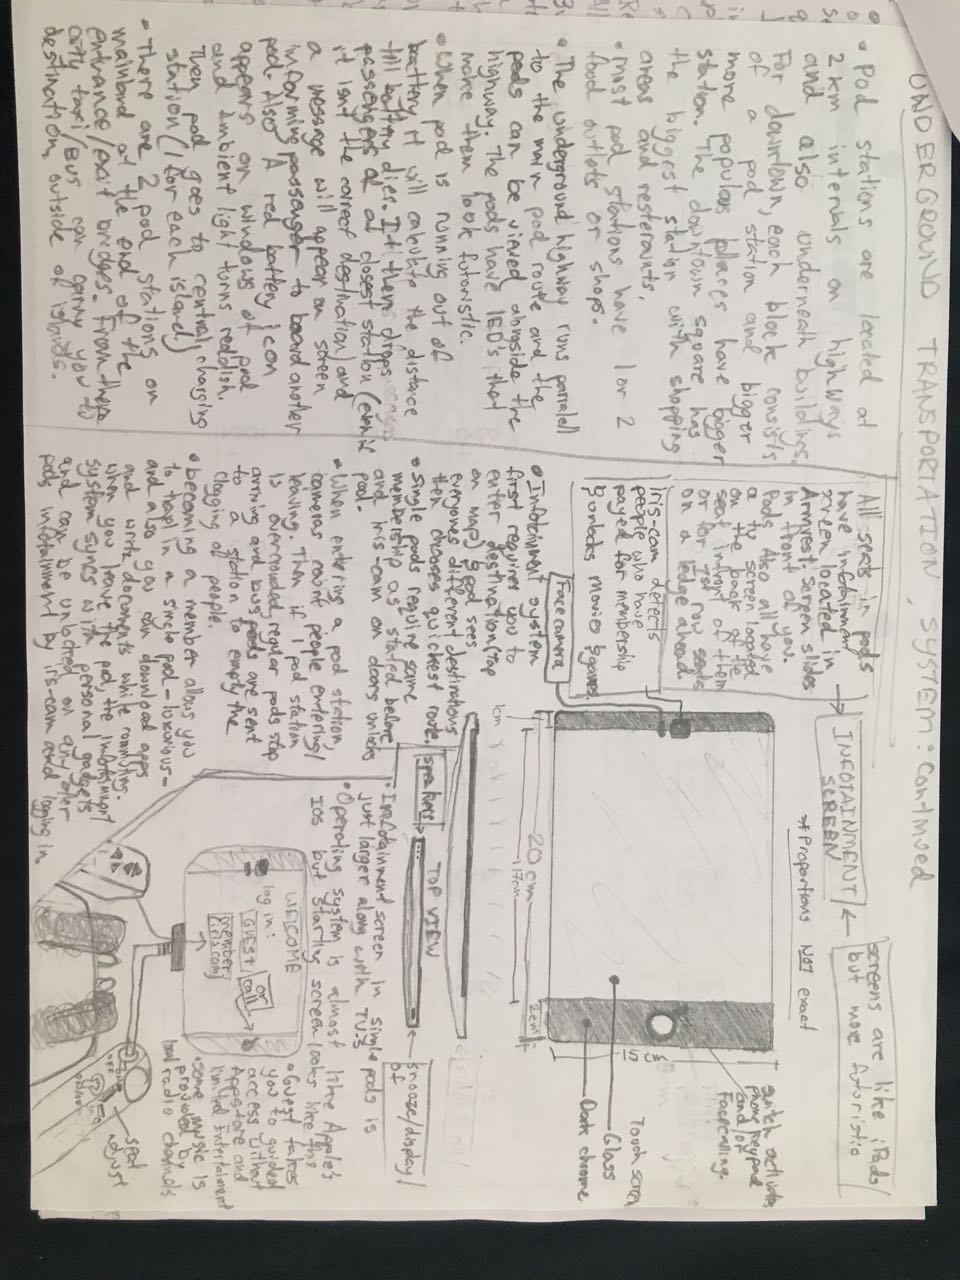 UNDERGROUND TRANSPORTATION SYSTEM: continued
• Pod stations are located at
2 km intervals on highways
and also underneath buildings.
For downtown, each block consists
of a pod station and bigger
more populous places have bigger
station. The downtown square has
the biggest station with shopping
areas and resteraunts.
• most pod stations have 1 or 2
food outlets or shops.
• The underground highway runs
to the main pod route and the
pods can be viewed alongside the
highway. The pods have LED's that
make them look futuristic.
• When pod is running out of
battery it will calculate the distance
till battery dies. It then drops
passengers at closest station (even if
it isnt the correct destination) and
a message will appear on screen
informing passenger to board another
pod. Also A red battery icon
appears on windows of pod
and ambient light turns reddish.
Then pod goes to central charging
station (1 for each island)
• There are 2 pod stations on
mainland at the end of the
entrance/exit bridges. From there
city taxi/Bus can carry you to
destination, outside of islands.
All seats in pods
have infotainment
screen located in
Armrest. screen slides
in front of you.
Pods Also all have
a tv screen located
on the back of the
seat infront of them
or for 1st row seats
on a ledge ahead
iris-cam detects
people who have
payed for membership
& unlocks movies & games
Face camera
• Infotainment system
first requires you to
enter destination (tap
on map) & pod sees
everyones different destinations
then chooses quickest route.
• Single pods require same
membership as stated before
and iris-cam on doors unlocks
pod.
• When entering a pod station,
cameras count people entering/
leaving. Then if 1 pod station
is overcrowded, regular pods stop
arriving and bus pods are sent
to a station to empty the
clogging of people.
• becoming a member allows you
to tap in a single pod - luxurious -
and also you can download apps
and write documents while commuting.
when you leave the pod, the infotainment
system syncs with personal gadgets
and can be unlocked on any other
pods infotainment by iris-cam and logging in
INFOTAINMENT
SCREEN
* Proportions NOT exact
screens are like iPads/
but more futuristic
1cm
20 cm
17cm
2cm
15 cm
switch activates
phone keypad
and/or
Facecalling.
Touch screen
Glass
Dark chrome
speakers
TOP VIEW
snooze/display/
off
• Infotainment screen in single pods is
just larger along with T.V.s
• Operating system is almost like Apple's
IOS but starting screen looks like this
WELCOME
log in:
GUEST
or
call
member
(iris.com)
• Guest takes
you to guided
access without
Appstore and
limited Entertainment
• some music is
provided by
local radio channels
ON
OFF
seat
adjust